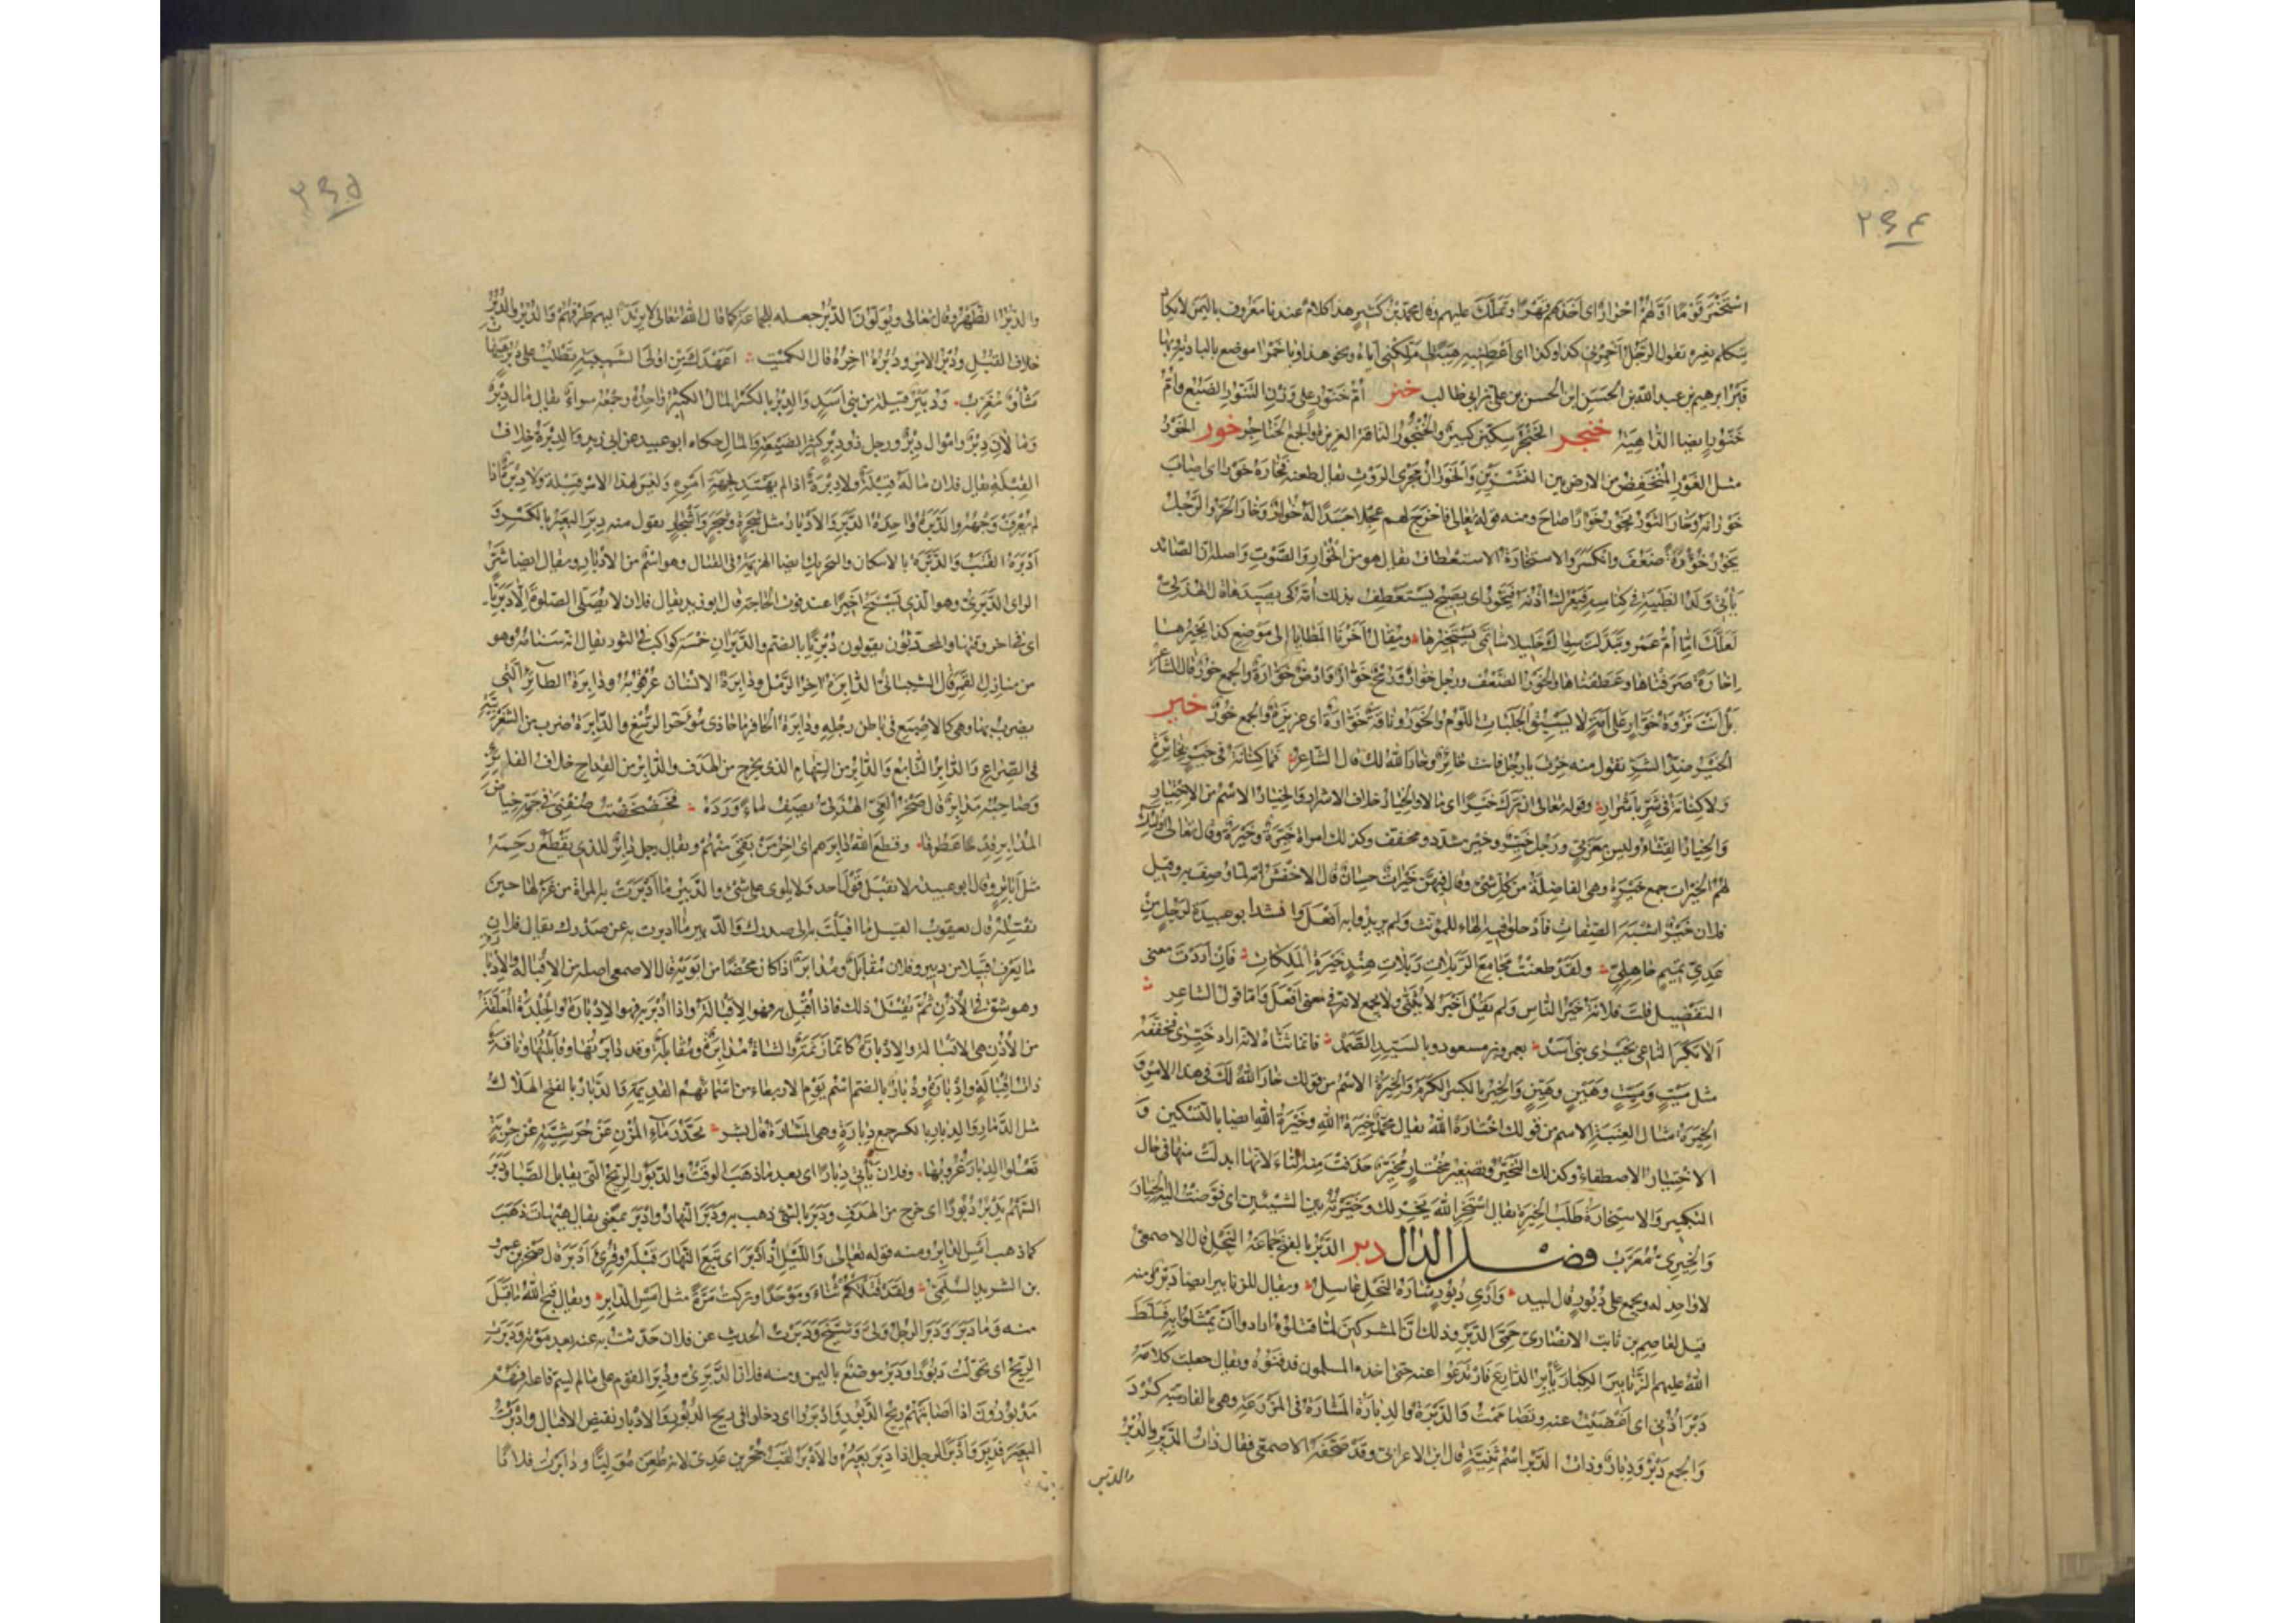 ٢٩٤
استخمر قوما اولهم احرار اى اخذهم قهرا وتملك عليهم وقال محمد بن كثير هذا كلام عندنا معروف باليمن لا يكاد
يتكلم بغيره يقول الرجل اخمرنى كذا وكذا اى اعطنيه هبة لى ملكنى اياه ونحو هذا وباخمرا موضع بالبادية وبها
قبر ابرهيم بن عبد الله بن الحسن بن الحسن بن على بن ابى طالب خنر ام خنور على وزن التنور الضبع وام
خنور ايضا الداهية خنجر الخنجر سكين كبير والخنجور الناقة الغزيرة والجمع الخناجر خور الخور
مثل الغور المنخفض من الارض بين النشزين والخوران مجرى الروث يقال طعنه فخاره خورا اى اصاب
خورانه وخار الثور يخور خوارا صاح ومنه قوله تعالى فاخرج لهم عجلا جسدا له خوار وخار الحر والرجل
يخور خؤورة ضعف وانكسر والاستخارة الاستعطاف يقال هو من الخوار والصوت واصله ان الصائد
يأتى ولد الظبية فى كناسه فيعرك اذنه فيخور اى يصيح يستعطف بذلك امه كى يصيدها قال الهذلى
لعلك اما ام عمرو تبدلت سواك خليلا شاتمى يستخيرها ويقال اخرنا المطايا الى موضع كذا نخيرها
اخارة صرفناها وعطفناها والخور الضعف ورجل خوار ورمح خوار وارض خوارة والجمع خور قال الشاعر
بل انت نزوة خوار على امة لا يسبق الحلبات اللؤم والخور وناقة خوارة اى غزيرة والجمع خور خير
الخير ضد الشر تقول منه خرت يا رجل فانت خائر وخار الله لك قال الشاعر فما كنانة فى خير بخائرة
ولا كنانة فى شر باشرار وقوله تعالى ان ترك خيرا اى مالا والخيار خلاف الاشرار والخيار الاسم من الاختيار
والخيار القثاء وليس بعربى ورجل خير وخير مشدد ومخفف وكذلك امراة خيرة وخيرة وقال تعالى اولئك
لهم الخيرات جمع خيرة وهى الفاضلة من كل شئ وقال فيهن خيرات حسان قال الاخفش انه لما وصف به وقيل
فلان خير اشبه الصفات فادخلوا فيه الهاء للمؤنث ولم يريدوا به افعل وانشد ابو عبيدة لرجل من
عدى تميم جاهلى ولقد طعنت مجامع الربلات ربلات هند خيرة الملكات فان اردت معنى
التفضيل قلت فلانة خير الناس ولم تقل اخير لا يثنى ولا يجمع لانه فى معنى افعل واما قول الشاعر
الا بكر الناعى بخيرى بنى اسد بعمرو بن مسعود وبالسيد الصمد فانما ثناه لانه اراد خيرى فخففه
مثل ميت وميت وهين وهين والخير بالكسر الكرم والخيرة الاسم من قولك خار الله لك فى هذا الامر و
الخيرة مثال العنبة الاسم من قولك اختاره الله يقال محمد خيرة الله وخيرة الله ايضا بالتسكين و
الاختيار الاصطفاء وكذلك التخير وتصغير مختار مخير حذفت منه التاء لانها ابدلت منها فى حال
التكبير والاستخارة طلب الخيرة يقال استخر الله يخر لك وخيرته بين الشيئين اى فوضت اليه الخيار
والخيرى معرب فصل الدال دبر الدبر بالفتح جماعة النحل قال الاصمعى
لا واحد له ويجمع على دبور قال لبيد وارى دبور شاره النحل عاسل ويقال للزنابير ايضا دبر ومنه
قيل لعاصم بن ثابت الانصارى حمى الدبر وذلك ان المشركين لما قتلوه ارادوا ان يمثلوا به فسلط
الله عليهم الزنابير الكبار تأبر الدارع فارتدعوا عنه حتى اخذه المسلمون فدفنوه ويقال جعلت كلامه
دبر اذنى اى اغضيت عنه وتصاممت والدبرة والدبارة المشارة فى المزرعة وهى بالفارسية كرد
والجمع دبر ودبار وذات الدبر اسم ثنية قال ابن الاعرابى وقد صحفه الاصمعى فقال ذات الدير والدبر
والدبر
٢٩٥
والدبر الظهر وقال تعالى ويولون الدبر جعله للجماعة كما قال الله تعالى لا يرتد اليهم طرفهم والدبر والدبر
خلاف القبل ودبر الامر ودبره اخره قال الكميت اعهدك من اولى الشبيبة تطلب على دبر هيهات
شأو مغرب ودبير قبيلة من بنى اسد والدبر بالكسر المال الكثير واحده وجمعه سواء يقال مال دبر
ومالان دبر واموال دبر ورجل ذو دبر كثير الضيعة والمال حكاه ابو عبيد عن ابى زيد والدبرة خلاف
القبلة يقال فلان ماله قبلة ولا دبرة اذا لم يهتد لجهة امره وليس لهذا الامر قبلة ولا دبرة اذا
لم يعرف وجهه والدبرة واحدة الدبر والادبار مثل شجرة وشجر واشجار تقول منه دبر البعير بالكسر و
ادبره القتب والدبرة بالاسكان والتحريك ايضا الهزيمة فى القتال وهو اسم من الادبار ويقال ايضا شر
الراى الدبرى وهو الذى يسنح اخيرا عند فوت الحاجة قال ابو زيد يقال فلان لا يصلى الصلوة الا دبريا
اى فى اخر وقتها والمحدثون يقولون دبريا بالضم والدبران خمسة كواكب فى الثور يقال انه سنامه وهو
من منازل القمر قال الشيبانى الدابرة اخر الرمل ودابرة الانسان عرقوبه ودابرة الطائر التى
يضرب بها وهى كالاصبع فى باطن رجليه ودابرة الحافر ما حاذى مؤخر الرسغ والدابرة ضرب من الشغزبية
فى الصراع والدابر التابع والدابر من السهام الذى يخرج من الهدف والدابر من القداح خلاف الفائز
وصاحبه مدابر قال صخر الغى الهذلى يصف ماء ورده فخضخضت صفنى فى جمه خياض
المدابر قدحا عطوفا وقطع الله دابرهم اى اخر من بقى منهم ويقال رجل ادابر للذى يقطع رحمه
مثل اباتر وقال ابو عبيدة لا يقبل قول احد ولا يلوى على شئ والدبير ما ادبرت به المراة من غزلها حين
تفتله قال يعقوب القبيل ما اقبلت به الى صدرك والدبير ما ادبرت به عن صدرك يقال فلان
ما يعرف قبيلا من دبير وفلان مقابل ومدابر اذا كان محضا من ابويه قال الاصمعى اصله من الاقبالة والادبارة
وهو شق فى الاذن ثم يفتل ذلك فاذا اقبل به فهو الاقبالة واذا ادبر به فهو الادبارة والجلدة المعلقة
من الاذن هى الاقبالة والادبارة كانها زنمة والشاة مدابرة ومقابلة وقد دابرتها وقابلتها وناقة
ذات اقبالة وادبارة ودبار بالضم اسم يوم الاربعاء من اسمائهم القديمة والدبار بالفتح الهلاك
مثل الدمار والدبار بالكسر جمع دبارة وهى المشارة قال بشر تحدر ماء المزن عن جرشية عن جربة
تعلوا الدبار غروبها وفلان يأتى دبارا اى بعد ما ذهب الوقت والدبور الريح التى يقابل الصبا ودبر
السهم يدبر دبورا اى خرج من الهدف ودبر بالشئ ذهب به ودبر النهار وادبر بمعنى يقال هيهات ذهب
كما ذهب امس الدابر ومنه قوله تعالى والليل اذ ادبر اى تبع النهار قبله وقرئ ادبر قال صخر بن عمرو
بن الشريد السلمى ولقد قتلتكم ثناء وموحدا وتركت مرة مثل امس الدابر ويقال قبح الله ما قبل
منه وما دبر ودبر الرجل ولى وشيخ ودبرت الحديث عن فلان حدثت به عنه بعد موته ودبرت
الريح اى تحولت دبورا ودبر موضع باليمن ومنه فلان الدبرى ودبر القوم على ما لم يسم فاعله فهم
مدبورون اذا اصابتهم ريح الدبور وادبروا اى دخلوا فى ريح الدبور والادبار نقيض الاقبال وادبرت
البعير فدبر وادبر الرجل اذا دبر بعيره والادبر لقب حجر بن عدى لانه طعن موليا ودابرت فلانا